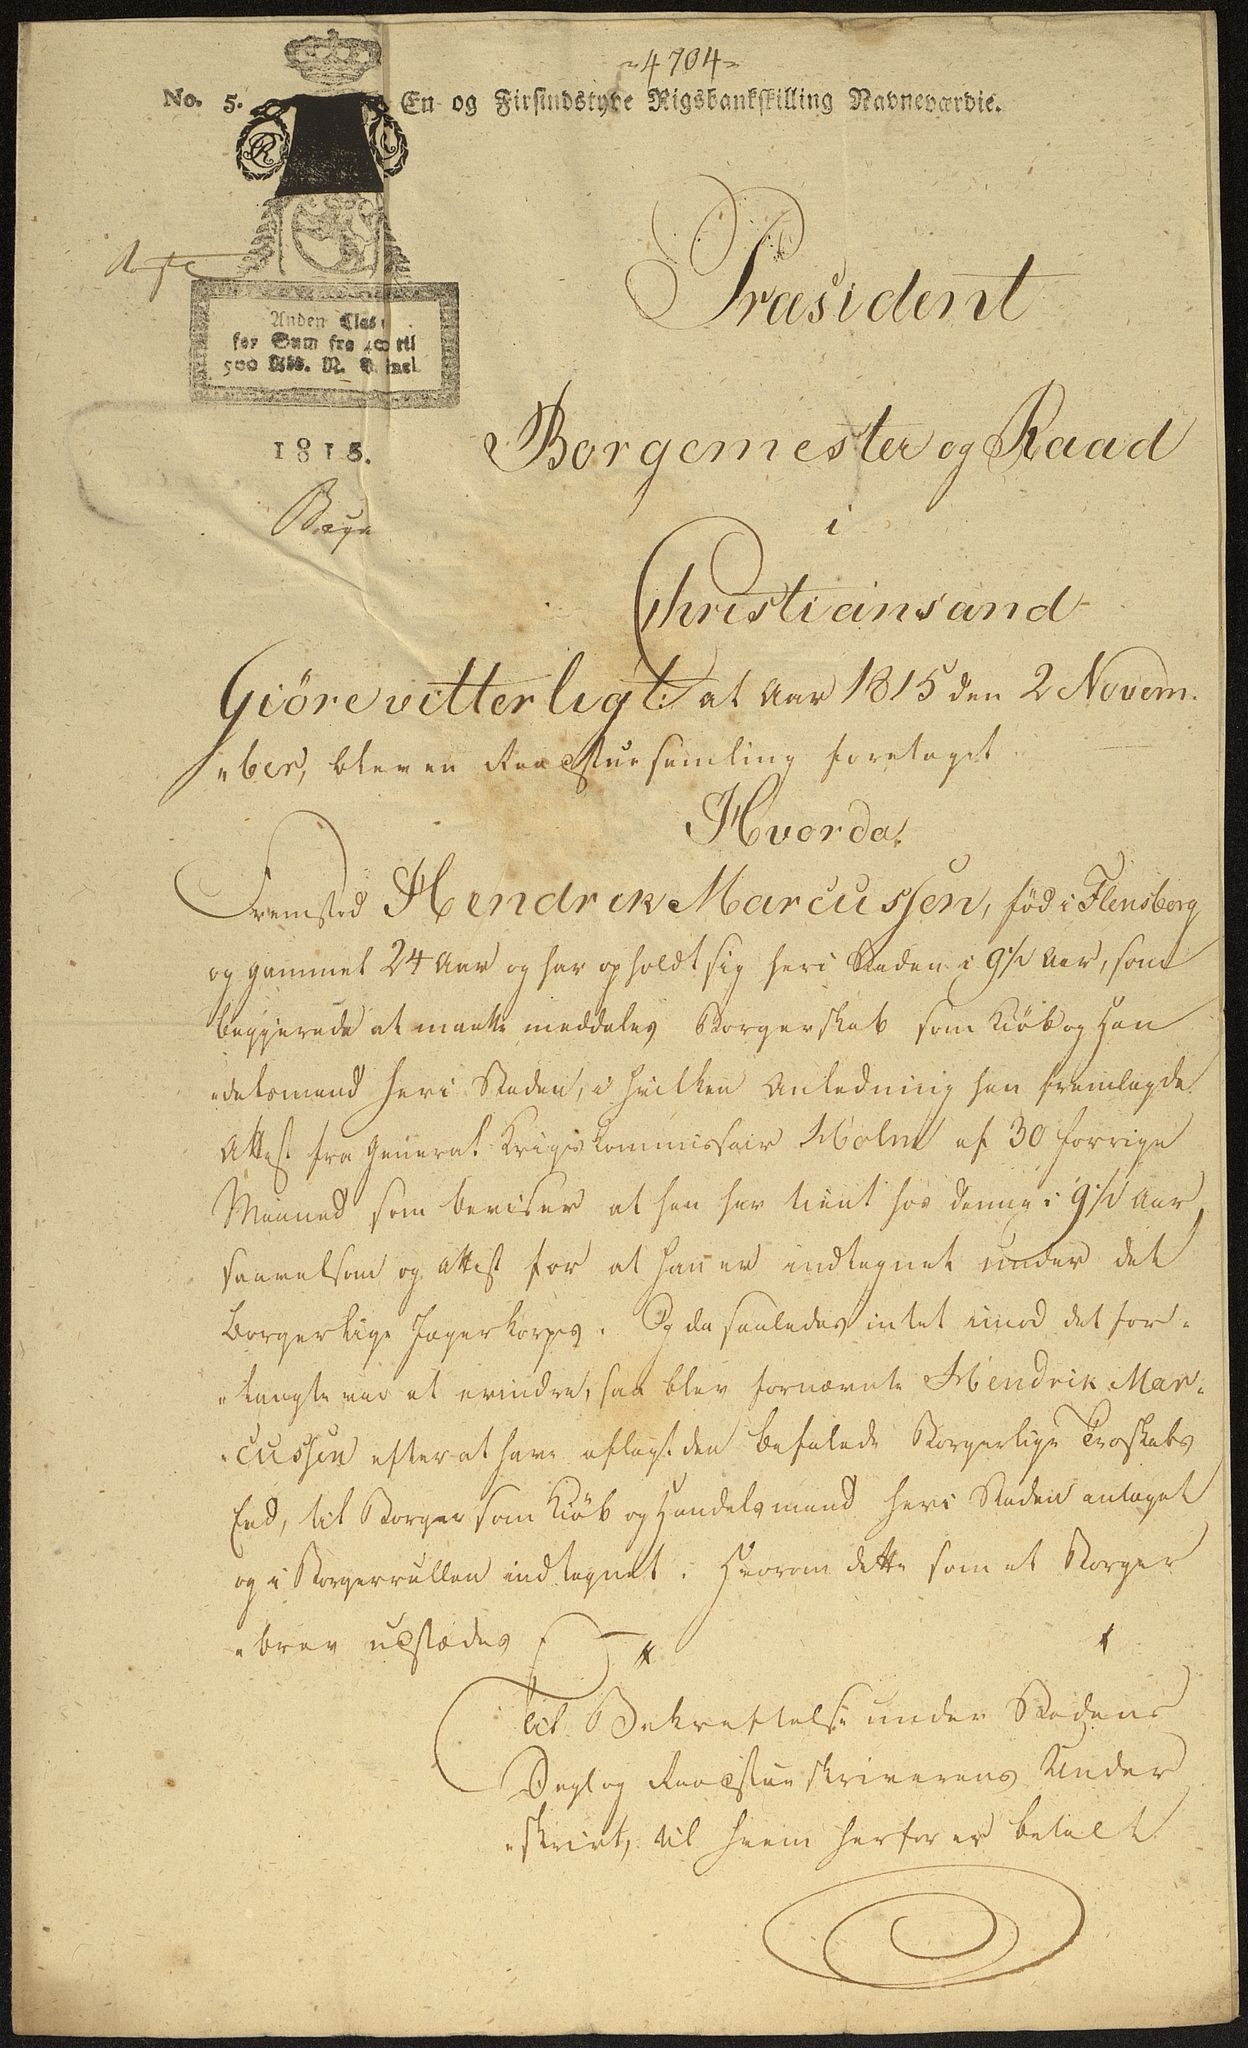 "4704"
No. 5. En- og Firsindstyve Rigsbankskilling Navneværdie.
Anden Class
for Sum fra 400 til
500 Rbd. N. V. incl.
1815.
Præsident
Borgemester og Raad
i
Christiansand
Giöre vitterligt: at Aar 1815 den 2 Novem-
"ber, blev en Raadstuesamling foretaget
Hvorda.
Fremstod Hendrik Marcussen, föd i Flensborg
og gammel 24 Aar og har opholdt sig her i Staden i 9½ Aar, som
begjerede at maatte meddeles Borgerskab som Kiöb og Han
"delsmand her i Staden, i hvilken Anledning han fremlagde
Attest fra General-Krigskommissair Holm af 30 forrige
Maaned som beviser at han har tient hos denne i 9½ Aar
saavelsom og Attest for at han er indtegnet under det
borgerlige Jægerkorps. Og da saaledes intet imod det for-
"langte var at erindre, saa blev fornævnte Hendrik Mar-
"cussen efter at have aflagt den befalede Borgerlige Troskabs
Eed, til Borger som Kiöb og Handelsmand her i Staden antaget
og i Borgerrullen indtegnet. Hvorom dette som et Borger
"brev udstædes
Til Bekræftelse under Stadens
Segl og Raadstueskriverens Under
"skrivt, til hvem herfor er betalt